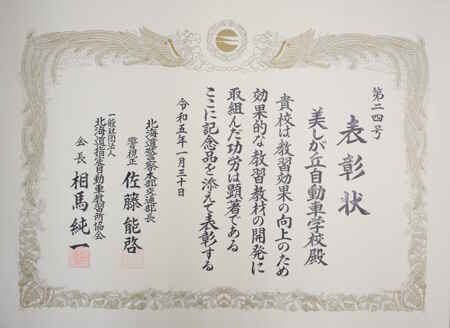 第二四号
表彰状
美しが丘自動車学校殿
貴校は教習効果の向上のため
効果的な教習教材の開発に
取組んだ功労は顕著である
ここに記念品を添えて表彰する
令和五年一月三十日
北海道警察本部交通部長
警視正 佐藤能啓
一般社団法人
北海道指定自動車教習所協会
会長 相馬純一